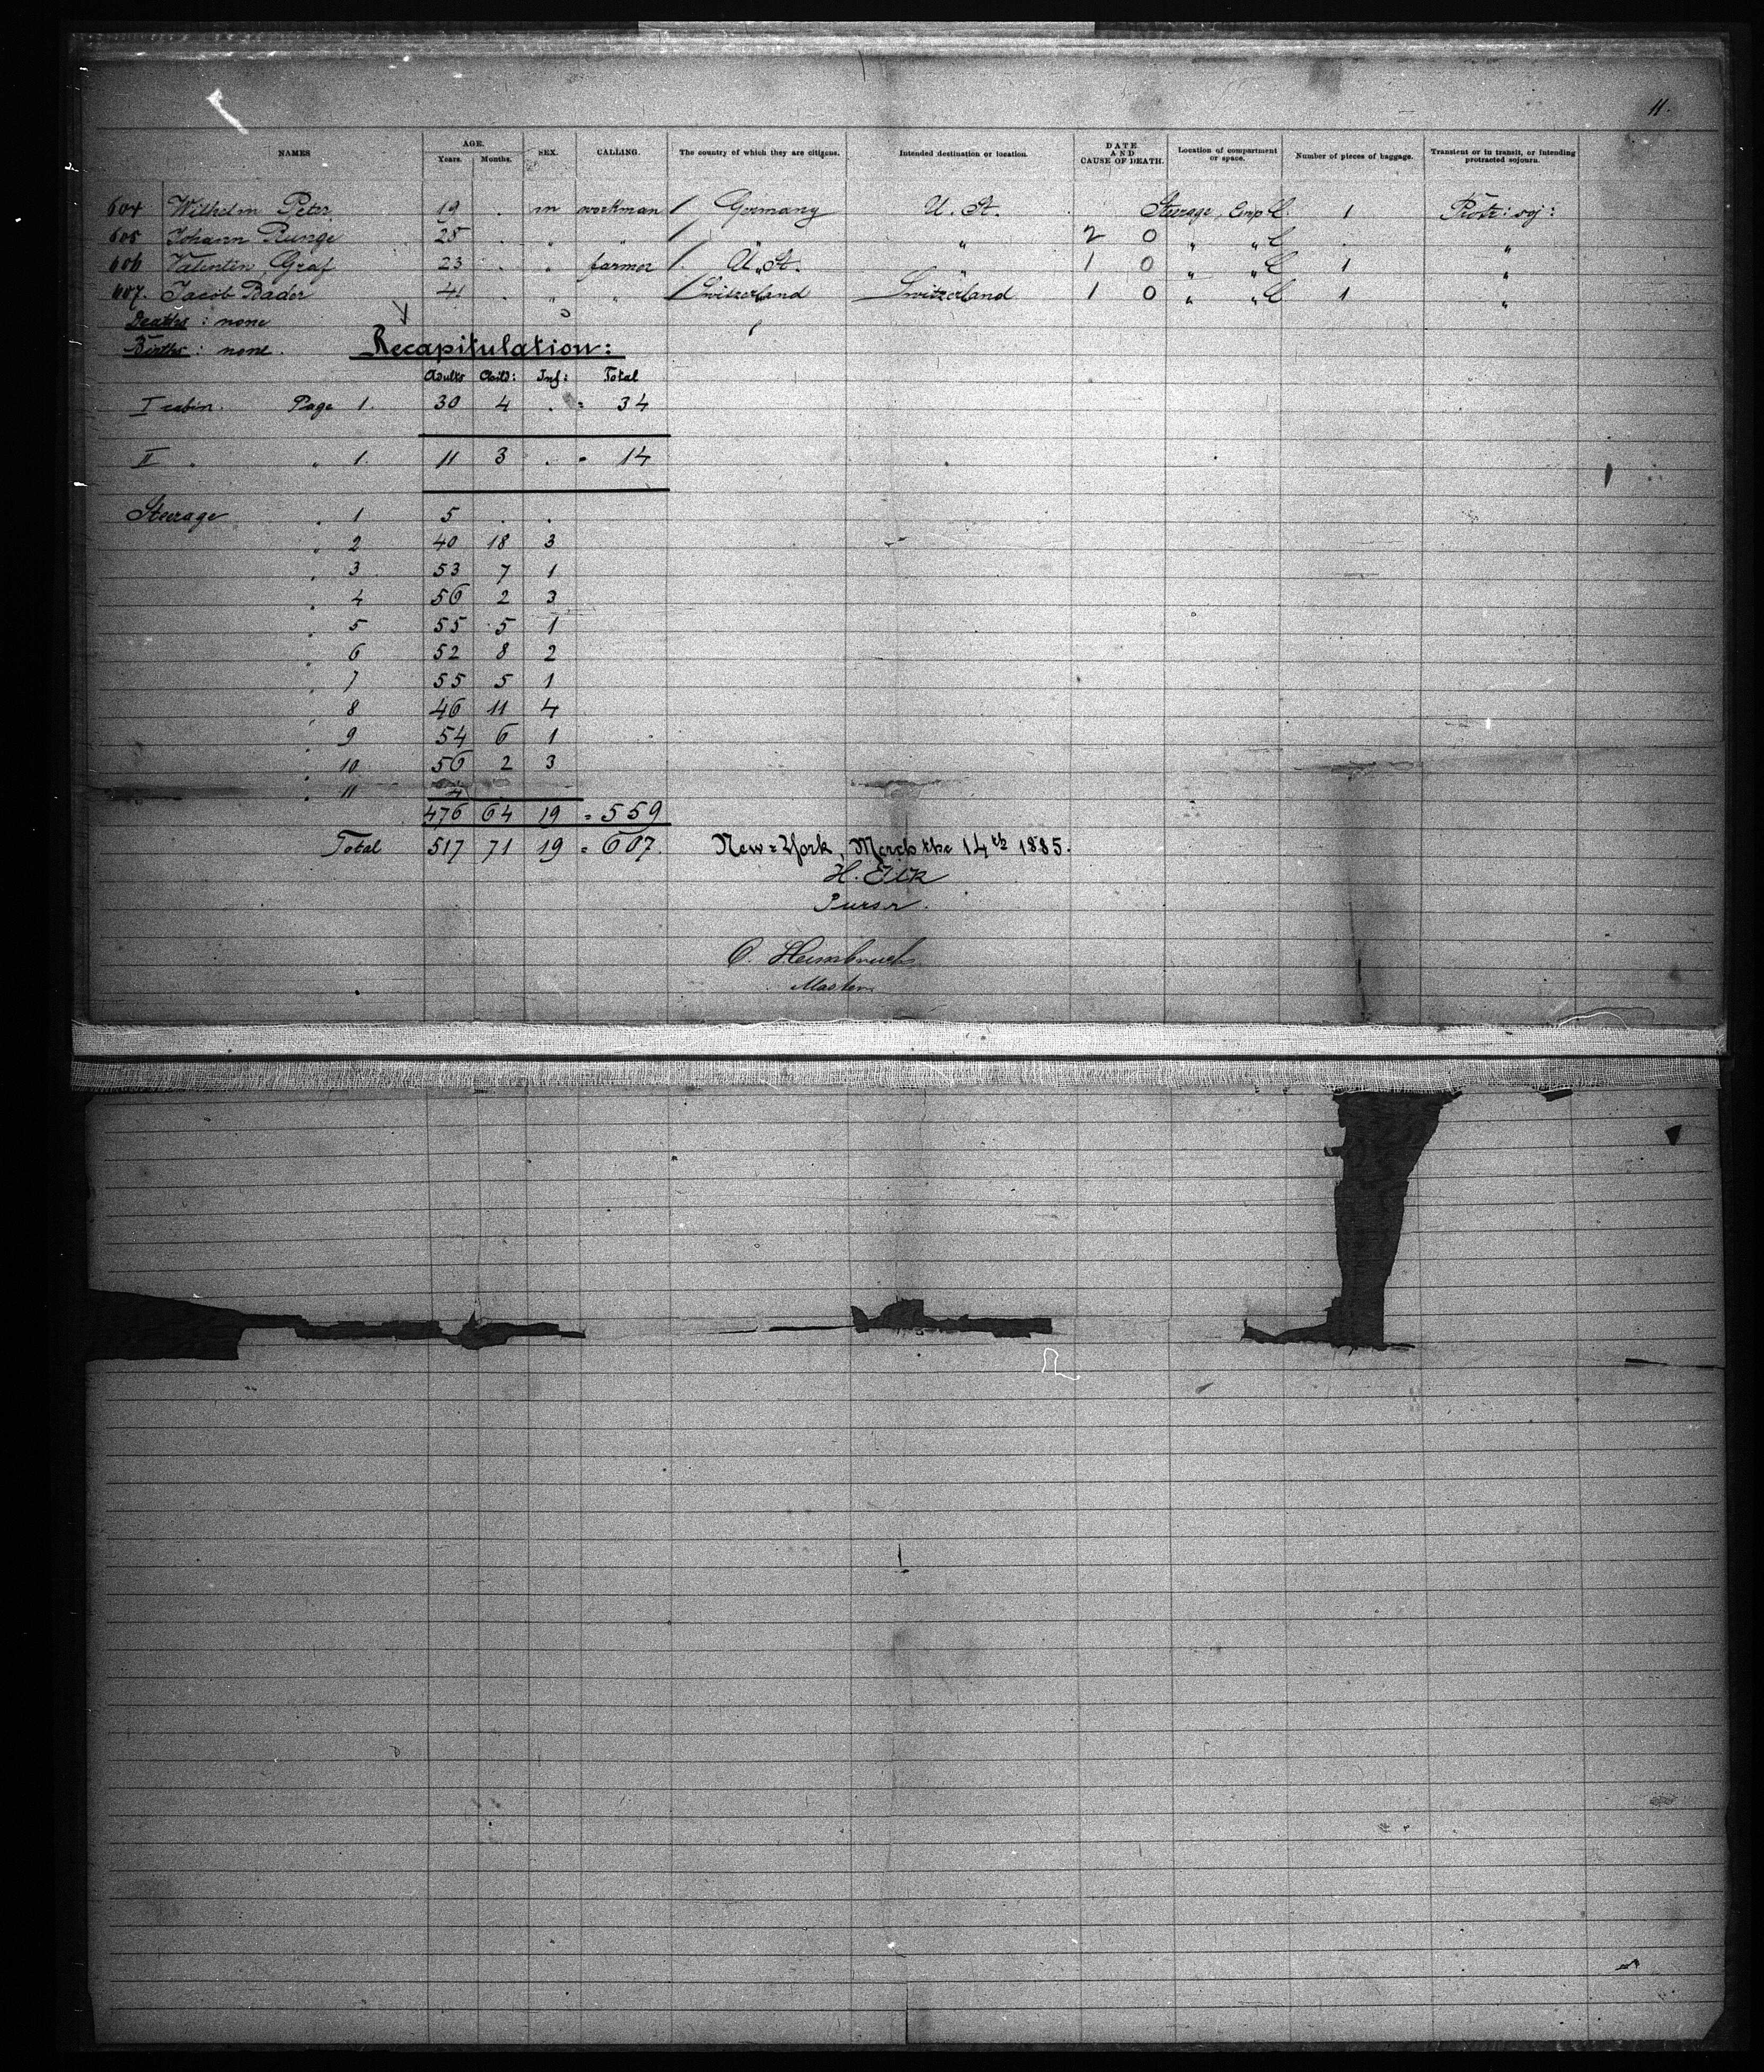 11.
NAMES AGE. Years. Months. SEX. CALLING. The country of which they are citizens. Intended destination or location. DATE AND CAUSE OF DEATH. Location of compartment or space. Number of pieces of baggage. Transient or in transit, or intending protracted sojourn.
604 Wilhelm Peter 19 . m workman / Germany U. St. Steerage 1 Protr: soj:
605 Johann Runge 25 . " " / " " 2 0 " " " . "
606 Valentin Graf 23 . " farmer / U. St. " 1 0 " " 1 "
607. Jacob Bader 41 . " " / Switzerland Switzerland 1 0 " " 1 "
Deaths : none
Births : none.
Recapitulation:
Adults Child: Inf: Total
I cabin. Page 1. 30 4 . = 34
II " " 1. 11 3 . = 14
Steerage " 1 5 . .
" 2 40 18 3
" 3 53 7 1
" 4 56 2 3
" 5 55 5 1
" 6 52 8 2
" 7 55 5 1
" 8 46 11 4
" 9 54 6 1
" 10 56 2 3
" 11 4
476 64 19 = 559
Total 517 71 19 = 607. New=York, March the 14th 1885.
Purser.
C. Heimbruch
Master